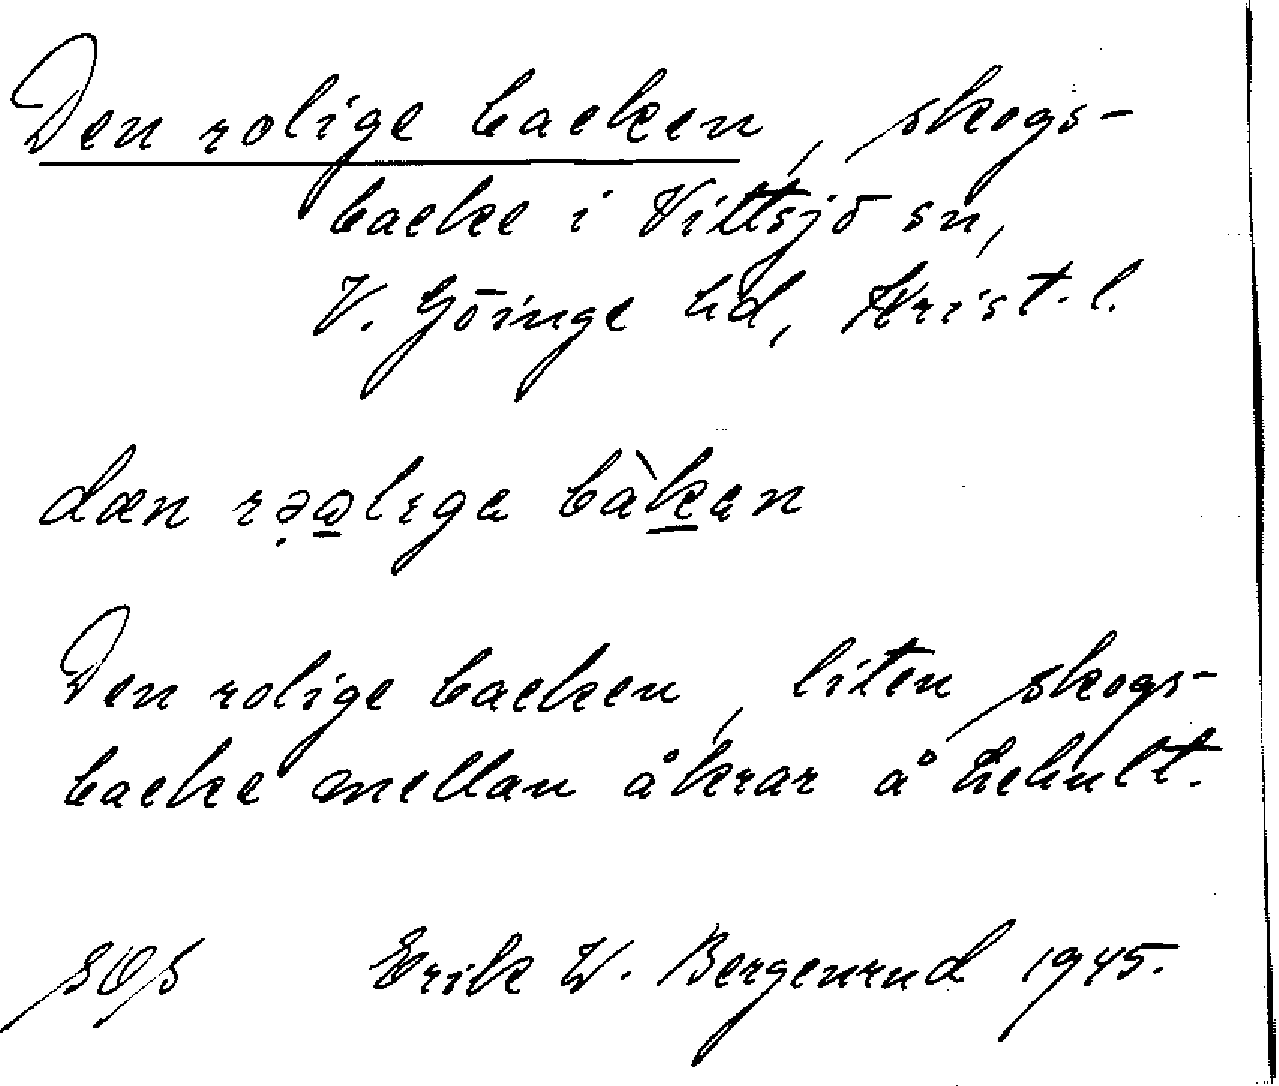 Den rolige backen, skogs-
backe i Vittsjö sn,
V. Göinge hd, Krist. l.
dæn rəolıga bàkan
Den rolige backen, liten skogs-
backe mellan åkrar å Lehult.
Erik W. Bergenrud 1945.